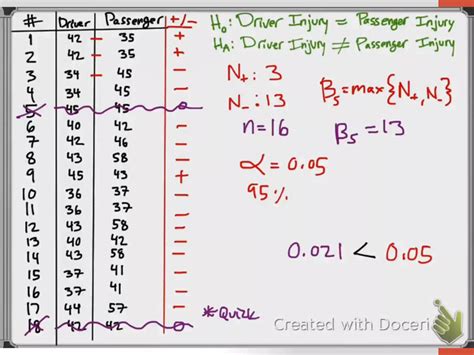 # Driver Passenger +/-
1 42 - 35 +
2 42 - 35 +
3 34 - 45 -
4 34 45 -
5 45 45
6 40 42 -
7 42 46 -
8 43 58 -
9 45 43 +
10 36 37 -
11 36 37 -
12 43 58 -
13 40 42 -
14 43 58 -
15 37 41 -
16 37 41 -
17 44 57 -
18 42 42
H₀: Driver Injury = Passenger Injury
Hₐ: Driver Injury ≠ Passenger Injury
N₊: 3
N₋: 13
Bₛ=max{N₊,N₋}
n=16
Bₛ=13
α=0.05
95%
0.021 < 0.05
Created with Doceri